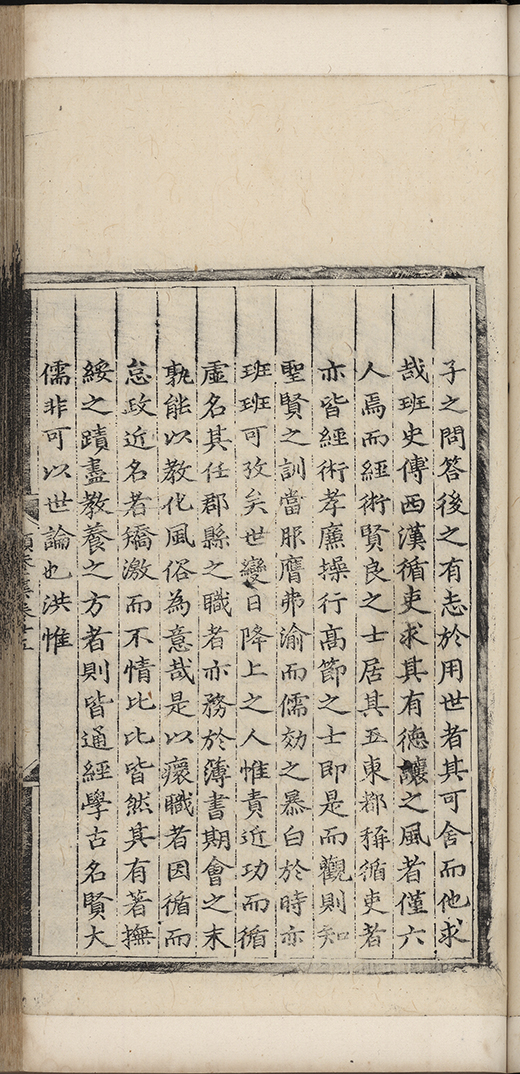 子之問答後之有志於用世者其可舍而他求
哉班史傳西漢循吏求其有德讓之風者僅六
人焉而經術賢良之士居其五東都稱循吏者
亦皆經術孝廉操行高節之士即是而觀則知
聖賢之訓當服膺弗渝而儒效之暴白於時亦
班班可攷矣世變日降上之人惟責近功而循
虛名其任郡縣之職者亦務於簿書期會之末
孰能以教化風俗為意哉是以瘝職者因循而
怠政近名者矯激而不情比比皆然其有著撫
綏之蹟盡教養之方者則皆通經學古名賢大
儒非可以世論也洪惟